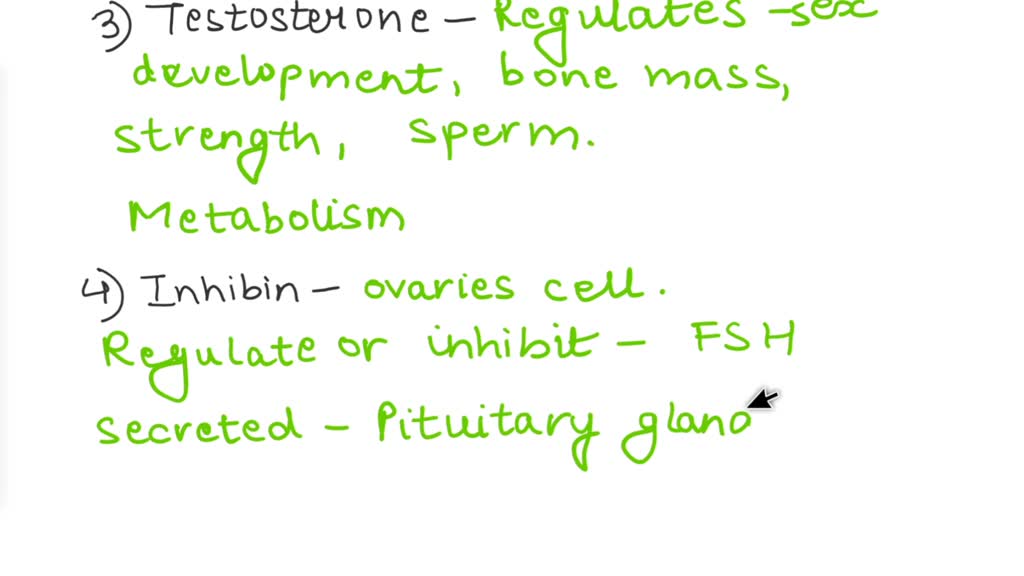 3) Testosterone - Regulates sex
development, bone mass,
strength, sperm.
Metabolism
4) Inhibin - ovaries cell.
Regulate or inhibit - FSH
secreted - Pituitary gland